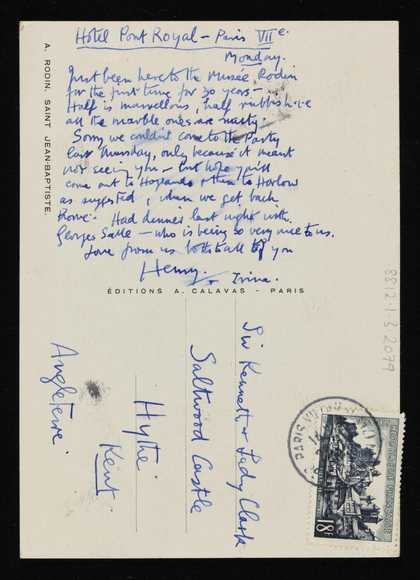 Hotel Pont Royal - Paris VIIe.
Monday.
Just been here to the Musée Rodin
for the first time for 30 years -
Half is marvellous, half rubbish - i.e
all the marble ones are nasty.
Sorry we couldn't come to the Party
last Thursday, only because it meant
not seeing you - But hope you'll
come out to Hoglands & then to Harlow
as suggested, when we get back.
Rome. Had dinner last night with
Georges Salle - who is being so very nice to us.
Love from us both to all of you
Henry & Irina.
A. RODIN. SAINT JEAN-BAPTISTE.
ÉDITIONS A. CALAVAS - PARIS
Sir Kenneth & Lady Clark
Saltwood Castle
Hythe
Kent
Angleterre.
8812.1.3.2079
PARIS VII
18F